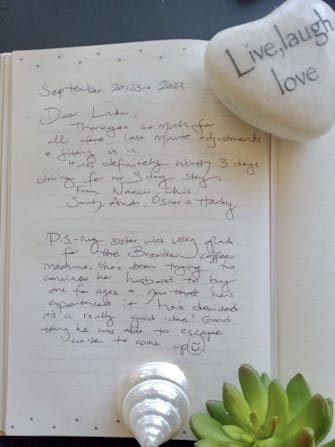 Live, laugh
love
September 20-23rd 2021
Dear Linda,
Thankyou so much for
all the last minute adjustments
& fitting us in.
It was definitely worth 3 days
driving for our 3 day stay.
From Naomi, Chris
Santy, Andi, Oscar & Harley
P.S. - my sister was very glad
for the Breville coffee
machine. She's been trying to
convince her husband to buy
one for ages & now that he's
experienced it he's decided
it's a really good idea! Good
thing he was able to escape
work to come up